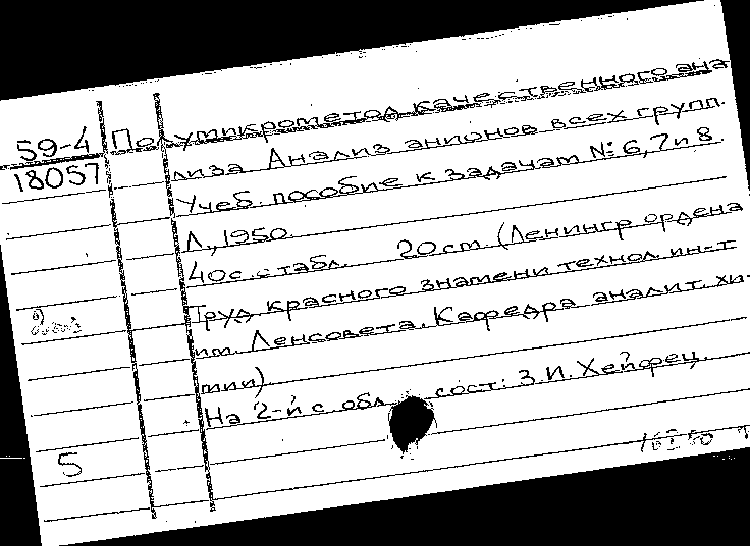 59-4
18057
Полумикрометод качественного ана-
лиза Анализ анионов всех групп.
Учеб. пособие к задачам №: 6, 7 и 8.
Л., 1950
40с. с табл. 20 см. (Ленингр ордена
Труд красного знамени технол. ин-т
им. Ленсовета. Кафедра аналит. хи-
мии)
На 2-й с. обл. сост: З.И. Хейфец.
5